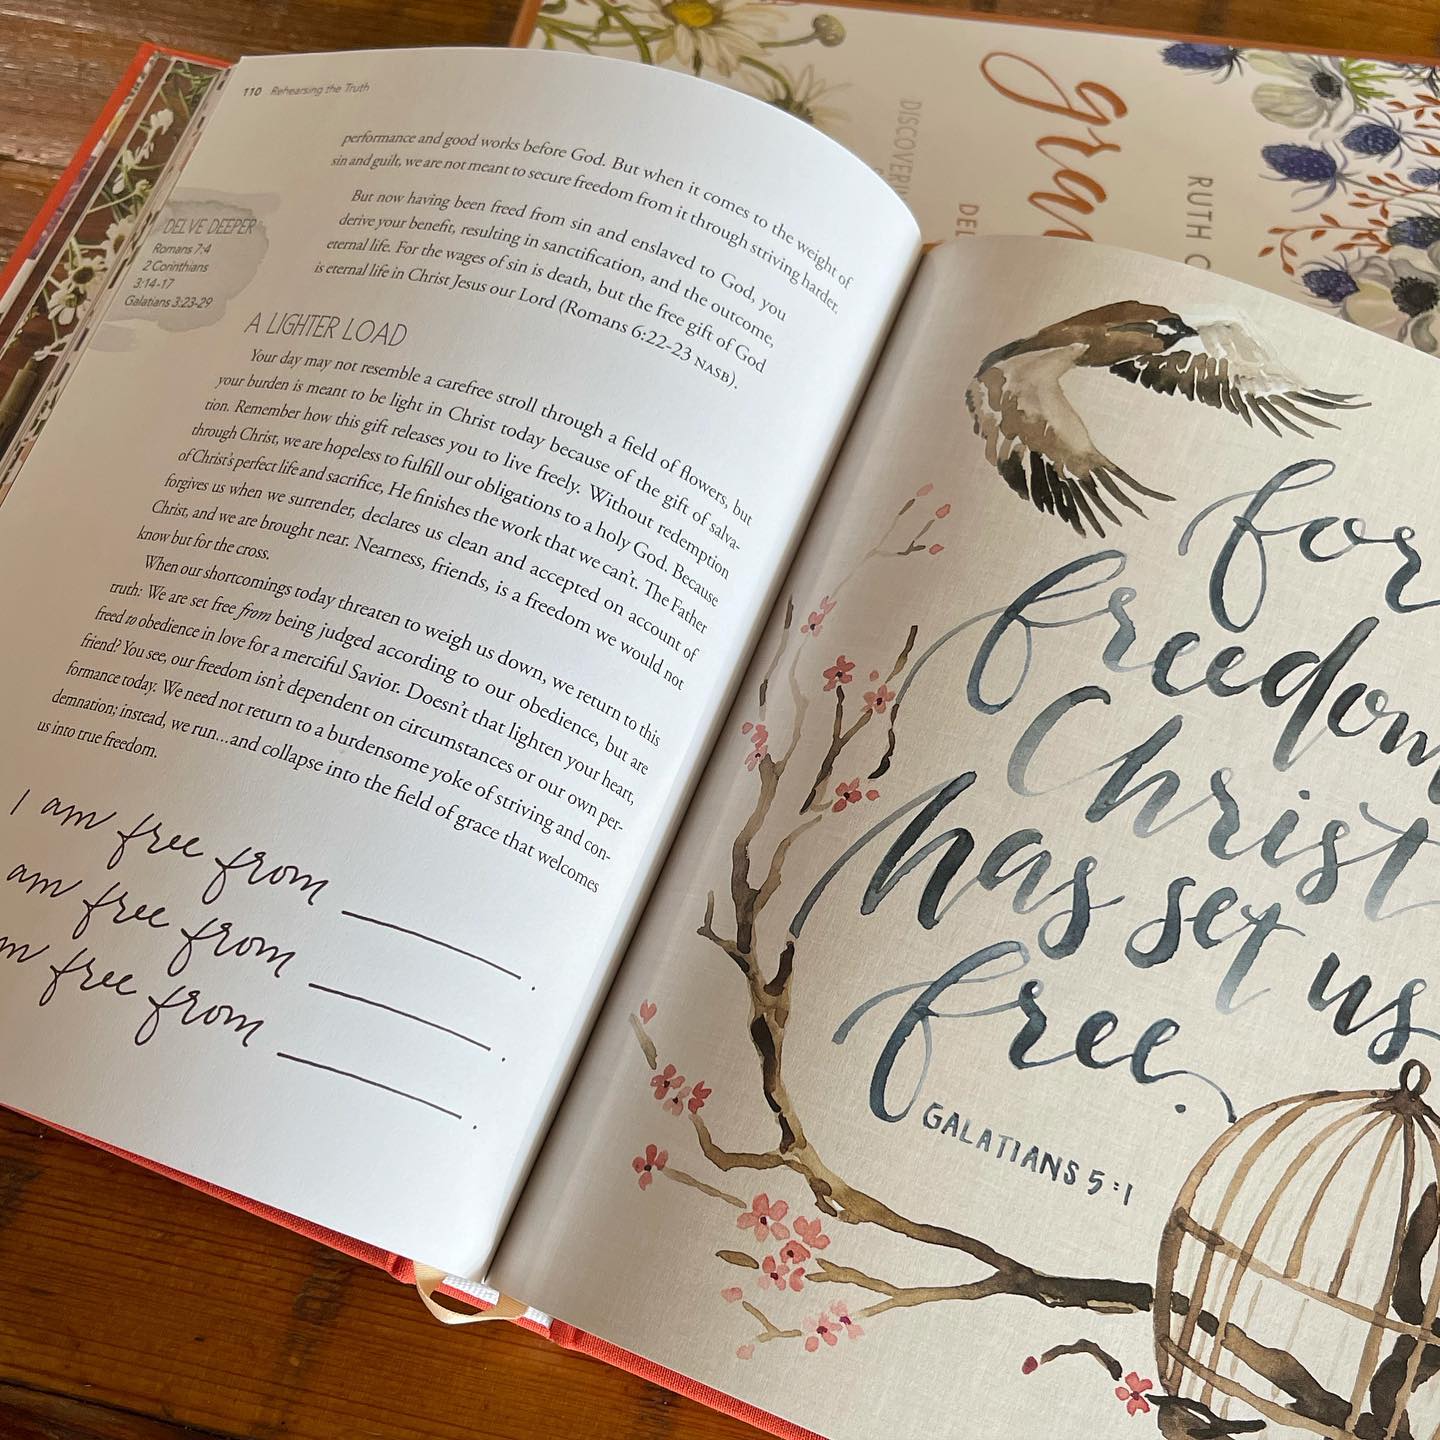 110 Rehearsing the Truth
performance and good works before God. But when it comes to the weight of
sin and guilt, we are not meant to secure freedom from it through striving harder.
But now having been freed from sin and enslaved to God, you
derive your benefit, resulting in sanctification, and the outcome,
eternal life. For the wages of sin is death, but the free gift of God
is eternal life in Christ Jesus our Lord (Romans 6:22-23 NASB).
DELVE DEEPER
Romans 7:4
2 Corinthians
3:14-17
Galatians 3:23-29
A LIGHTER LOAD
Your day may not resemble a carefree stroll through a field of flowers, but
your burden is meant to be light in Christ today because of the gift of salva-
tion. Remember how this gift releases you to live freely. Without redemption
through Christ, we are hopeless to fulfill our obligations to a holy God. Because
of Christ's perfect life and sacrifice, He finishes the work that we can't. The Father
forgives us when we surrender, declares us clean and accepted on account of
Christ, and we are brought near. Nearness, friends, is a freedom we would not
know but for the cross.
When our shortcomings today threaten to weigh us down, we return to this
truth: We are set free from being judged according to our obedience, but are
freed to obedience in love for a merciful Savior. Doesn't that lighten your heart,
friend? You see, our freedom isn't dependent on circumstances or our own per-
formance today. We need not return to a burdensome yoke of striving and con-
demnation; instead, we run...and collapse into the field of grace that welcomes
us into true freedom.
I am free from ______.
am free from ______.
m free from ______.
for
freedom
Christ
has set us
free.
GALATIANS 5:1
gra
RUTH C
DISCOVERI
DEL